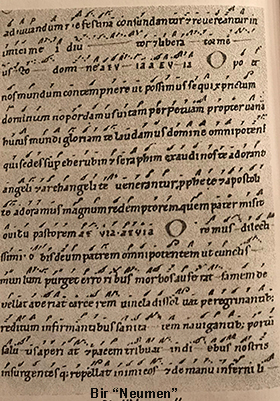 adiuvandum me festina confundantur & revereantur in
imici mei diu tor & libera to me
us Ro domi ne aeυia aaeυia O po te
nos mundum contempnere ut possimus sequi xpistum
dominum no pordamus vitam perpetuam propter vana
huius mundi gloriam te laudamus domine omnipotens
qui sedes sup cherubin & seraphim exaudi nos te adorant
angeli & archangeli te venerantur pphete & apostoli
te adoramus magnum redemptorem quem pater misit
ovium pastorem aeυia aeυia O remus dilecti
ssimi o bis deum patrem omnipotentem ut cunctis
mundum purget errori bus morbos auferat famem de
pellat aperiat carcerem vincla dissol vat peregrinantib;
reditum infirmantibus sanita tem navigantib; portū
salu tis aperi at & pacem tribuat in di ebus nostris
insurgentes q; repellat inimicos & de manu inferni li
Bir “Neumen”